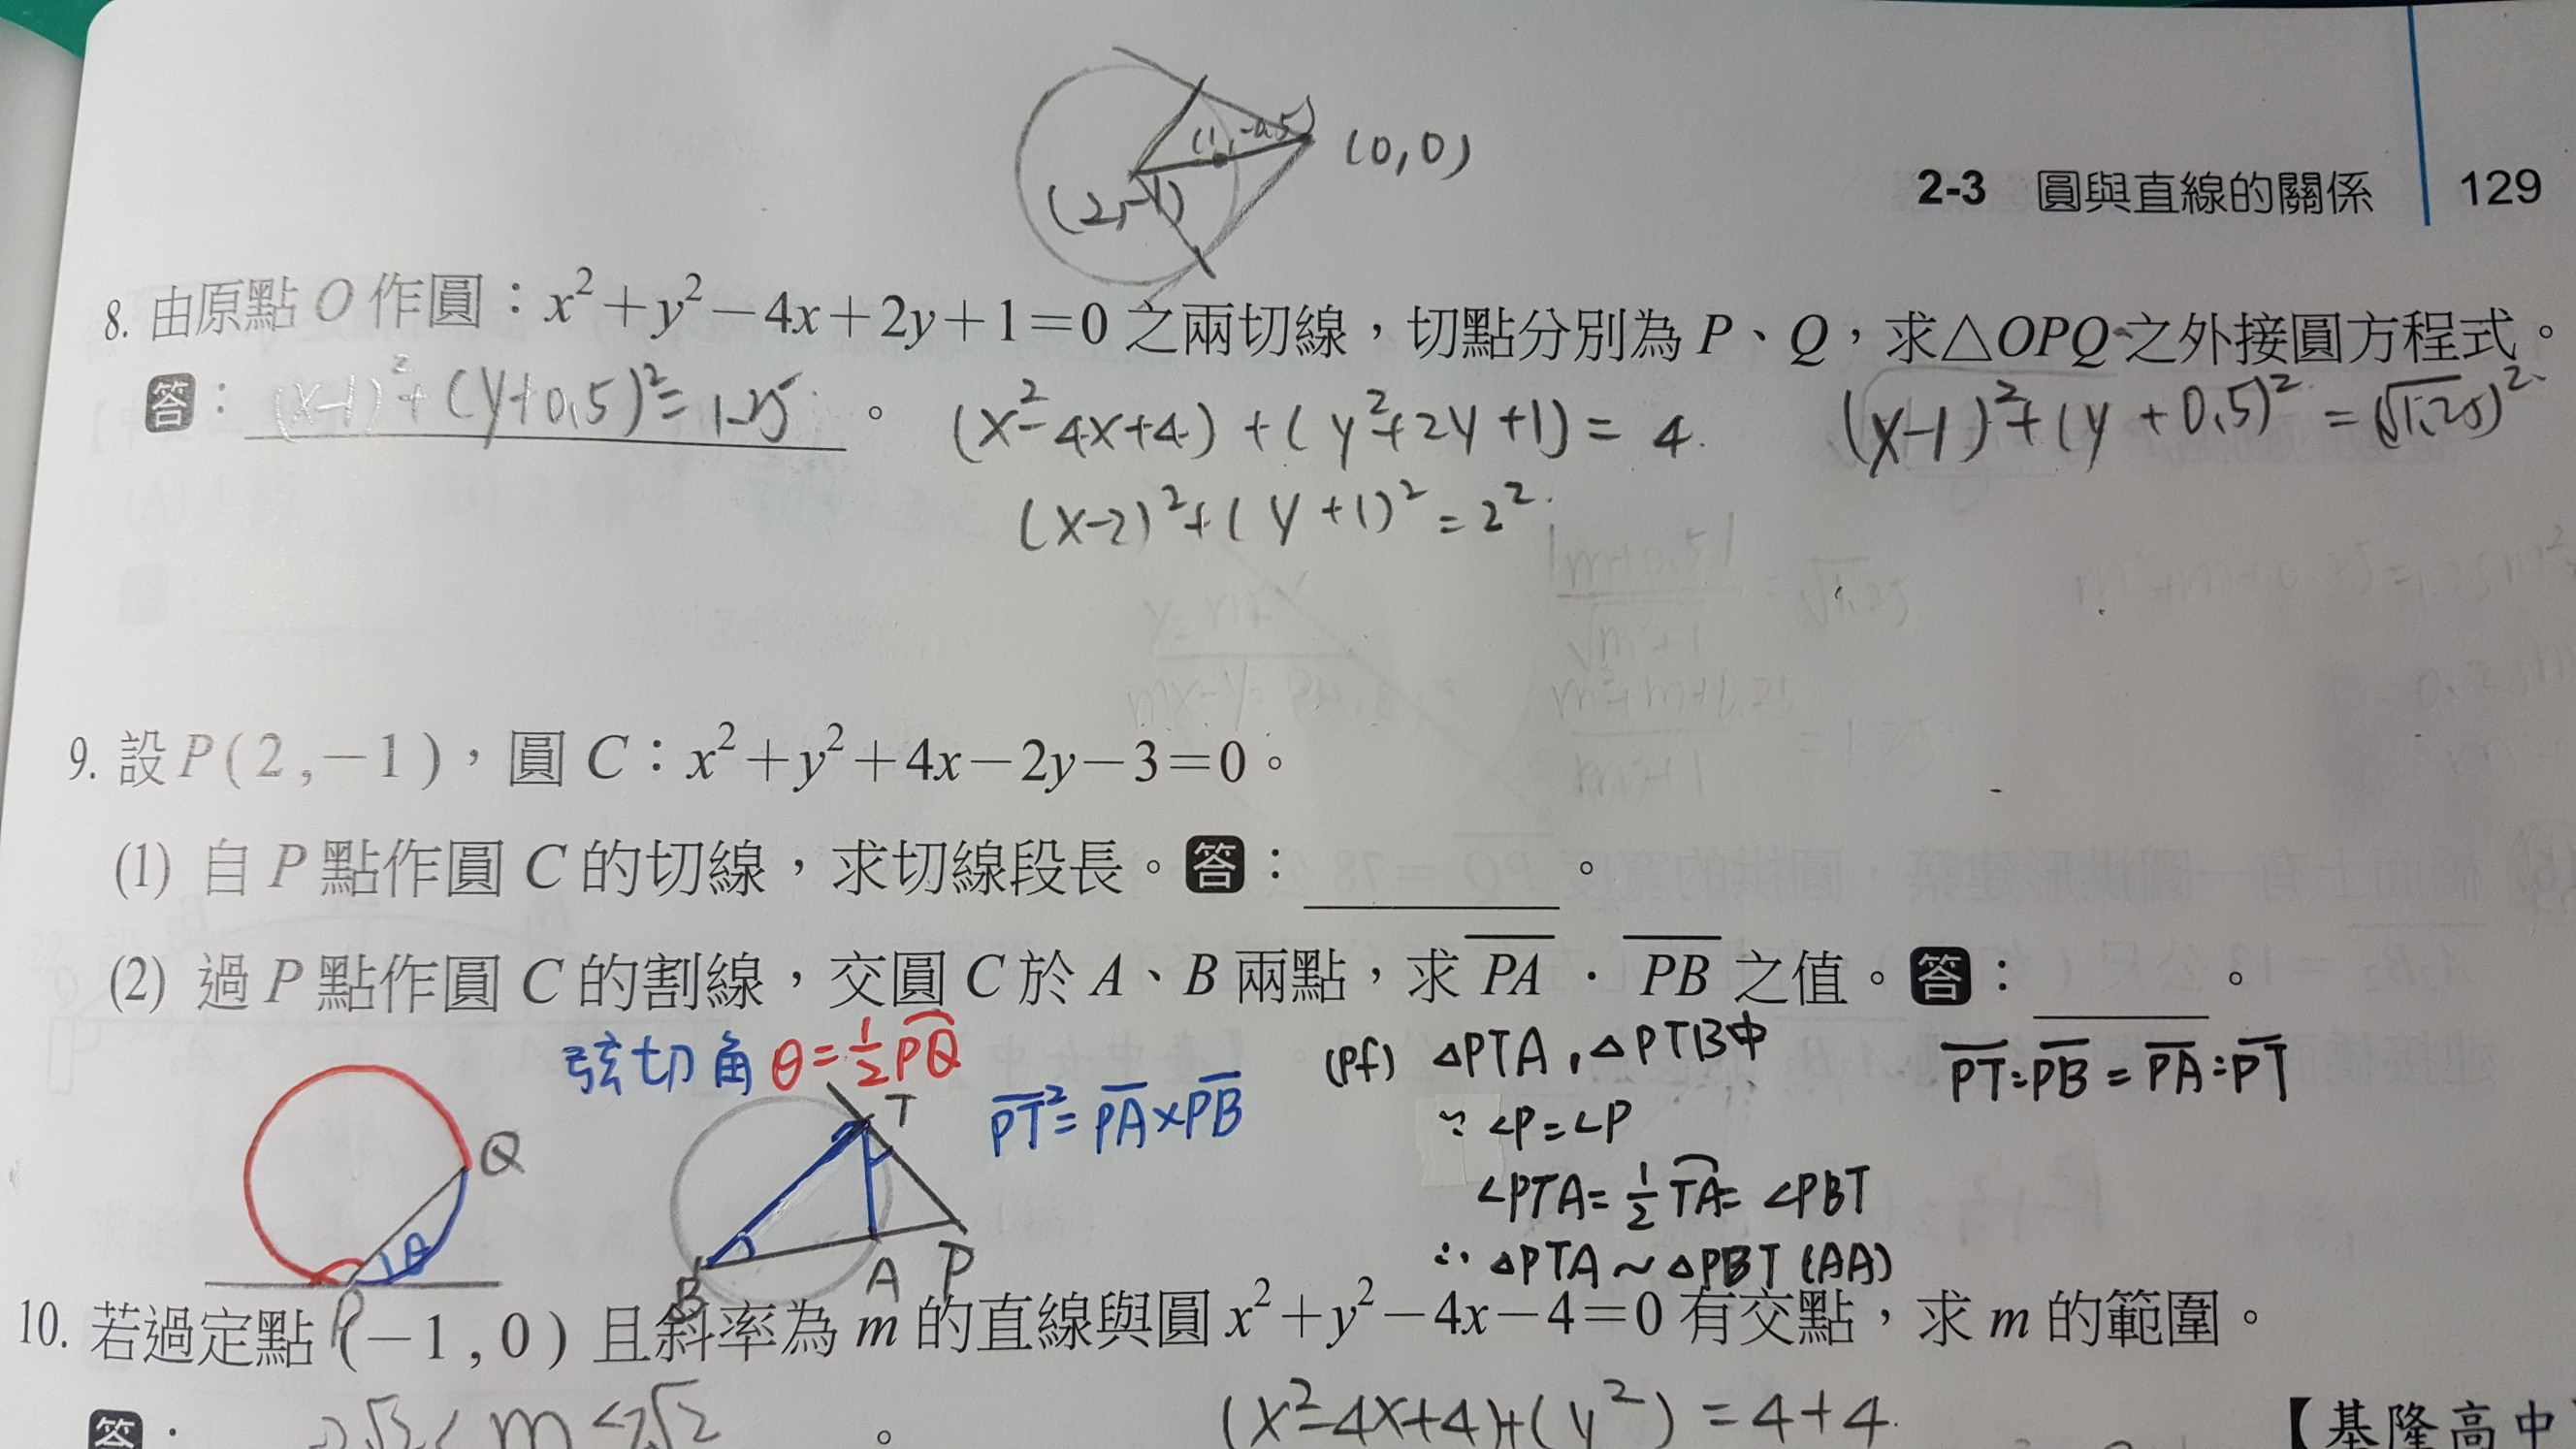 (1,-0.5)
(0,0)
(2,-1)
2-3 圓與直線的關係 129
8. 由原點 O 作圓：x²+y²−4x+2y+1=0 之兩切線，切點分別為 P、Q，求△OPQ 之外接圓方程式。
答：(x-1)²+(y+0.5)²=1.25。
(x²-4x+4)+(y²+2y+1)=4
(x-1)²+(y+0.5)²=(√1.25)²
(x-2)²+(y+1)²=2²
9. 設P(2,−1)，圓 C：x²+y²+4x−2y−3=0。
(1) 自 P 點作圓 C 的切線，求切線段長。答：。
(2) 過 P 點作圓 C 的割線，交圓 C 於 A、B 兩點，求 P̅A̅ · P̅B̅ 之值。答：。
弦切角 θ=½P͡Q
P̅T̅²=P̅A̅×P̅B̅
Q
θ
P
T
B
A
P
(pf) △PTA, △PTB中
∵ ∠P=∠P
∠PTA=½T͡A=∠PBT
∴ △PTA~△PBT (AA)
P̅T̅:P̅B̅=P̅A̅:P̅T̅
10. 若過定點(−1,0)且斜率為 m 的直線與圓 x²+y²−4x−4=0 有交點，求 m 的範圍。
答：
(x²-4x+4)+(y²)=4+4
【基隆高中